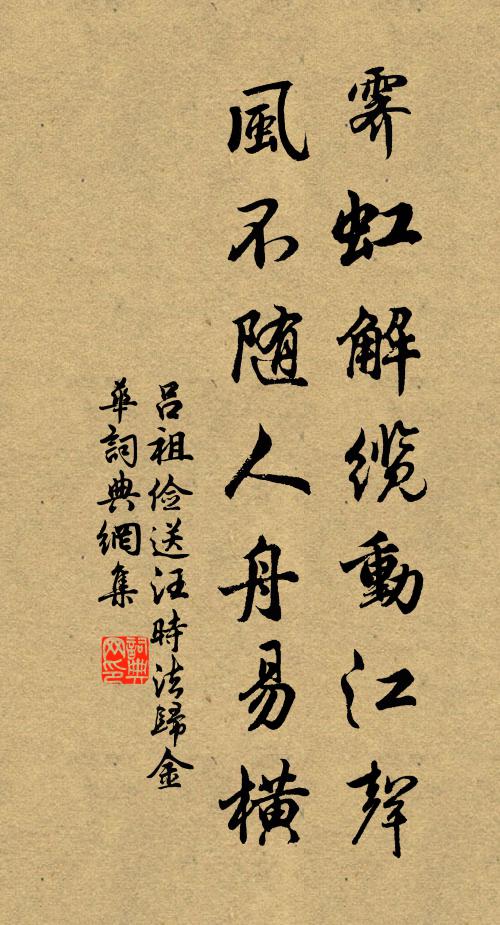 霽虹解纜動江聲
風不随人舟易橫
吕祖儉送汪時法歸金
華詞典網集
詞典网印